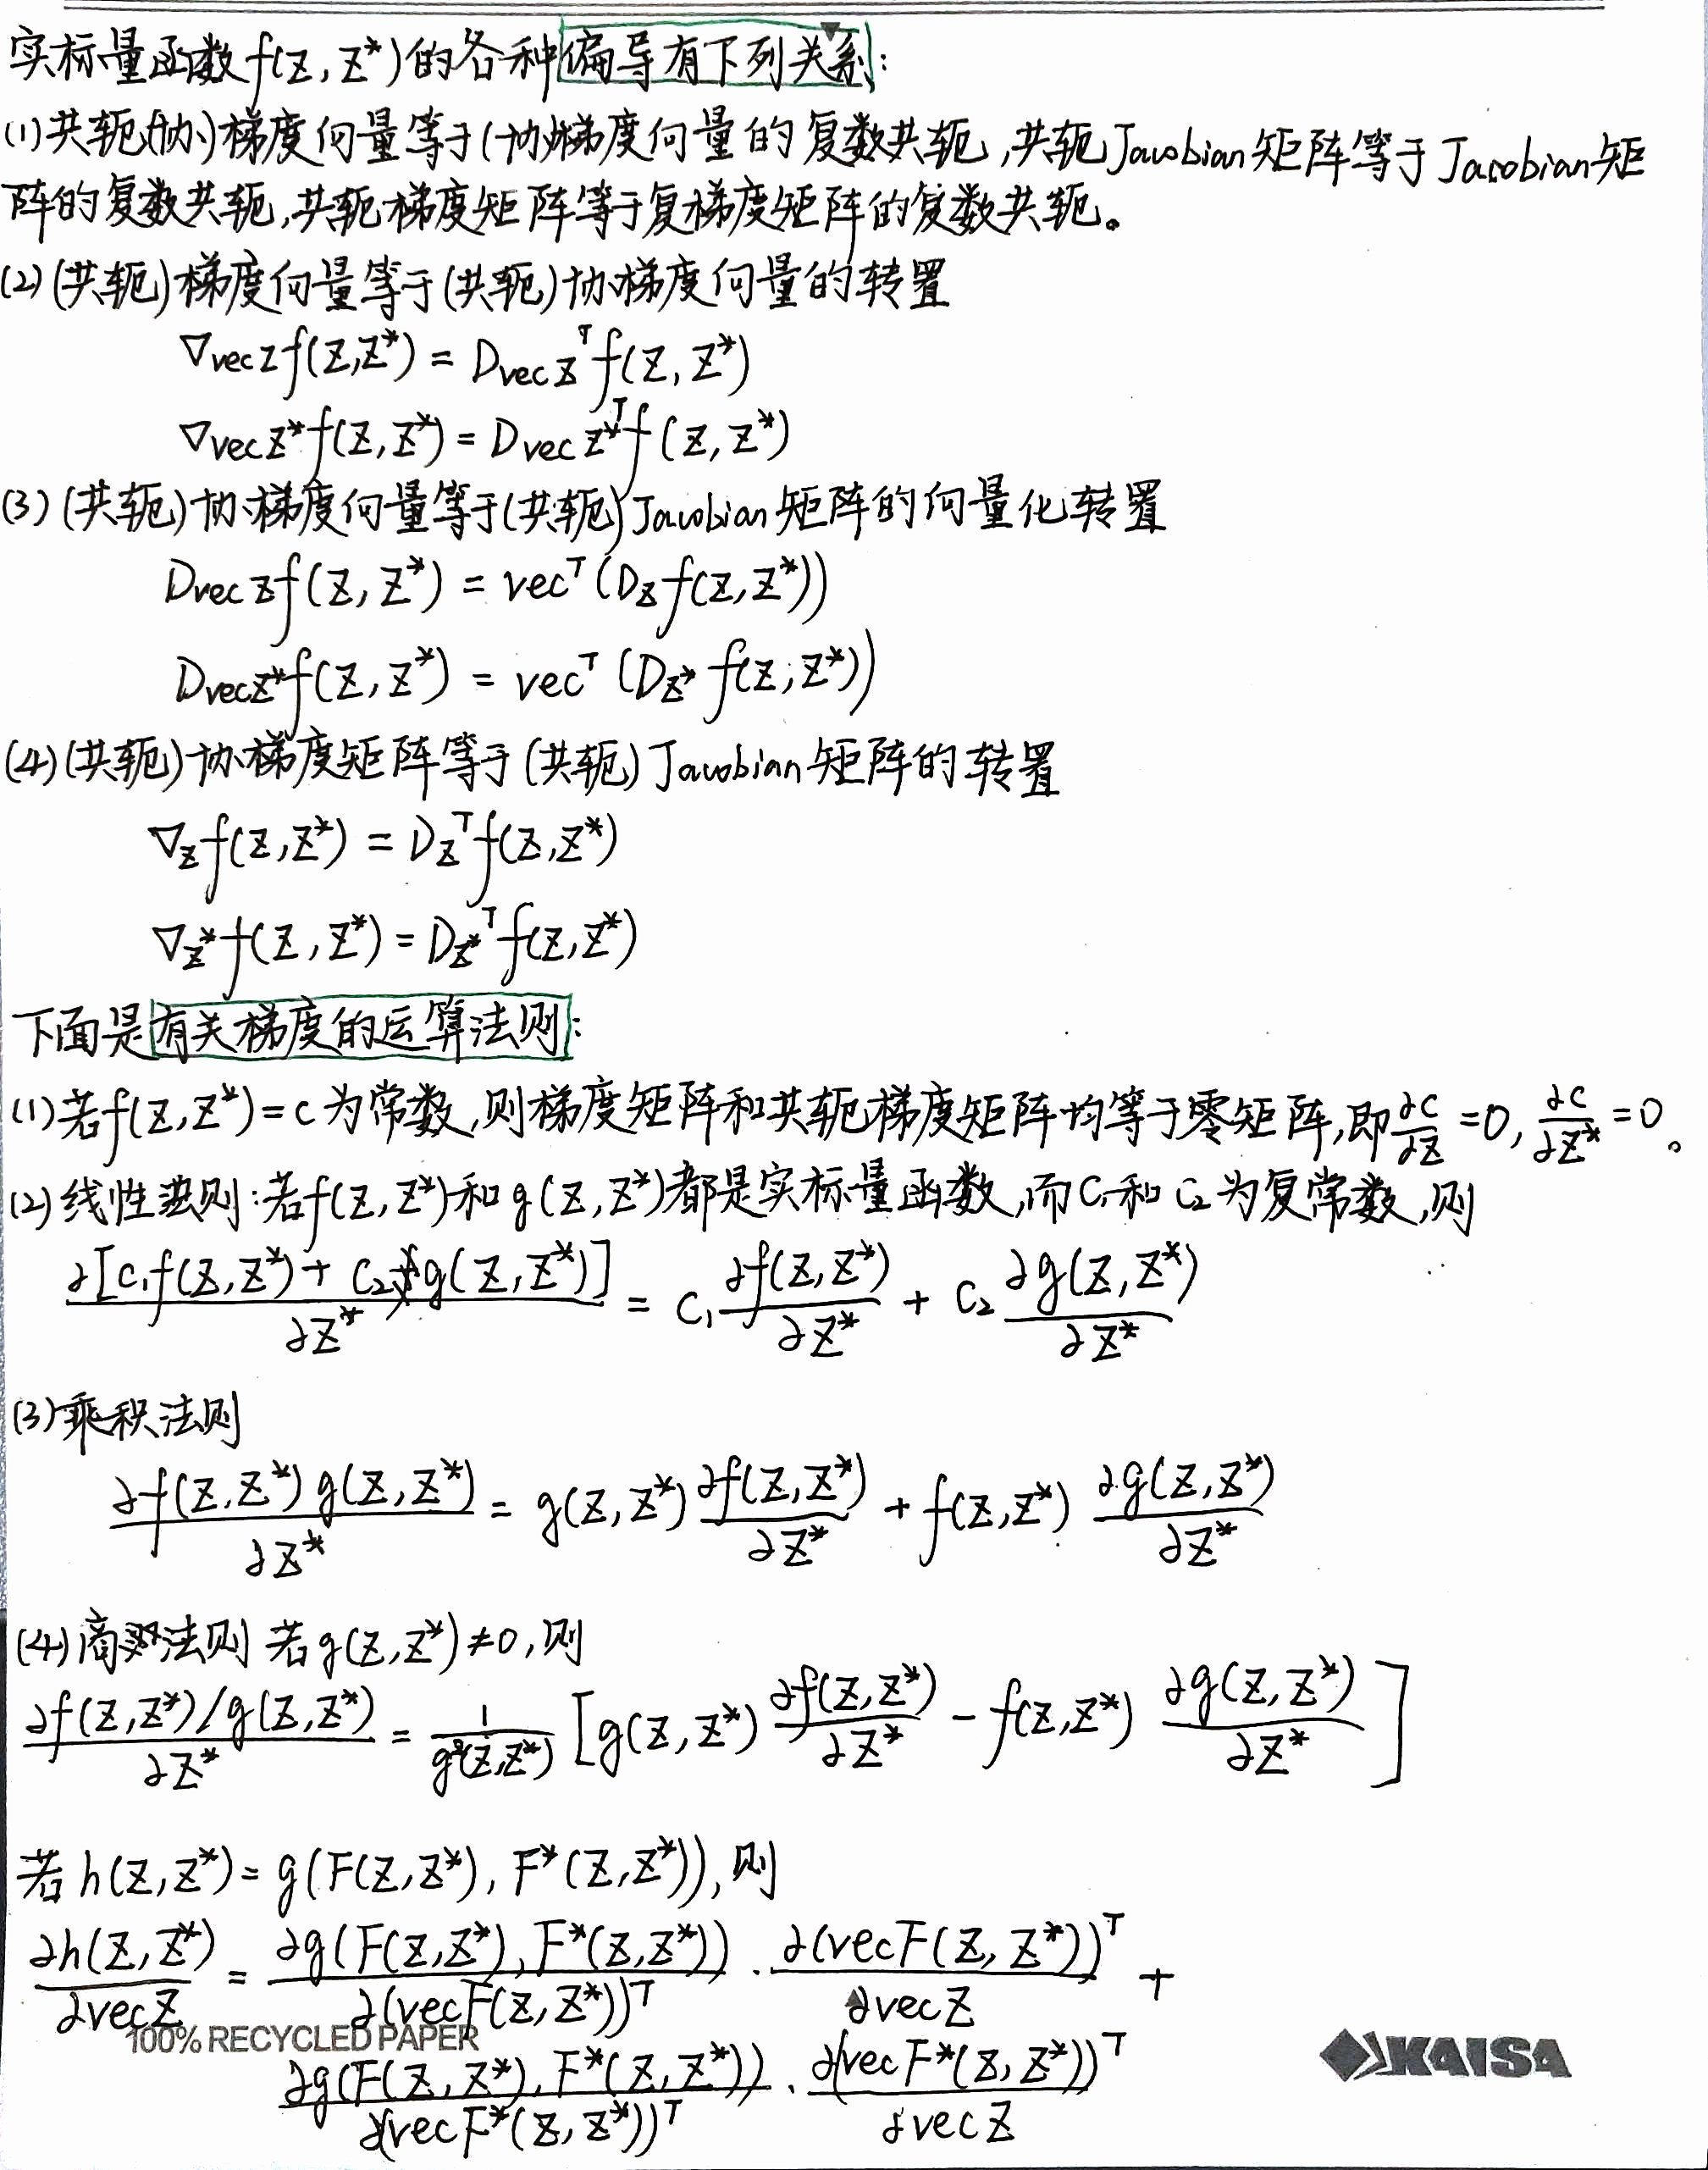 实标量函数f(Z,Z*)的各种偏导有下列关系:
(1)共轭(协)梯度向量等于(协)梯度向量的复数共轭,共轭Jacobian矩阵等于Jacobian矩
阵的复数共轭,共轭梯度矩阵等于复梯度矩阵的复数共轭。
(2)(共轭)梯度向量等于(共轭)协梯度向量的转置
∇vec Z f(Z,Z*) = D^T_{vec Z} f(Z,Z*)
∇vec Z* f(Z,Z*) = D^T_{vec Z*} f(Z,Z*)
(3)(共轭)协梯度向量等于(共轭)Jacobian矩阵的向量化转置
D_{vec Z} f(Z,Z*) = vec^T(D_Z f(Z,Z*))
D_{vec Z*} f(Z,Z*) = vec^T(D_{Z*} f(Z,Z*))
(4)(共轭)协梯度矩阵等于(共轭)Jacobian矩阵的转置
∇_Z f(Z,Z*) = D_Z^T f(Z,Z*)
∇_{Z*} f(Z,Z*) = D_{Z*}^T f(Z,Z*)
下面是有关梯度的运算法则:
(1)若f(Z,Z*)=c为常数,则梯度矩阵和共轭梯度矩阵均等于零矩阵,即∂c/∂Z=0,∂c/∂Z*=0。
(2)线性法则:若f(Z,Z*)和g(Z,Z*)都是实标量函数,而c₁和c₂为复常数,则
∂[c₁f(Z,Z*)+c₂g(Z,Z*)]/∂Z* = c₁ ∂f(Z,Z*)/∂Z* + c₂ ∂g(Z,Z*)/∂Z*
(3)乘积法则
∂f(Z,Z*)g(Z,Z*)/∂Z* = g(Z,Z*) ∂f(Z,Z*)/∂Z* + f(Z,Z*) ∂g(Z,Z*)/∂Z*
(4)商法则 若g(Z,Z*)≠0,则
∂f(Z,Z*)/g(Z,Z*)/∂Z* = 1/g²(Z,Z*) [g(Z,Z*) ∂f(Z,Z*)/∂Z* − f(Z,Z*) ∂g(Z,Z*)/∂Z*]
若h(Z,Z*)=g(F(Z,Z*),F*(Z,Z*)),则
∂h(Z,Z*)/∂vecZ = ∂g(F(Z,Z*),F*(Z,Z*))/∂(vecF(Z,Z*))^T · ∂(vecF(Z,Z*))^T/∂vecZ +
∂g(F(Z,Z*),F*(Z,Z*))/∂(vecF*(Z,Z*))^T · ∂(vecF*(Z,Z*))^T/∂vecZ
100% RECYCLED PAPER
KAISA